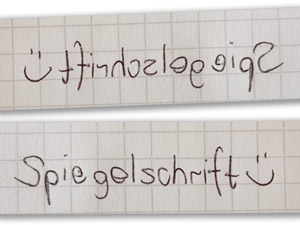 Spiegelschrift Ü
Spiegelschrift Ü